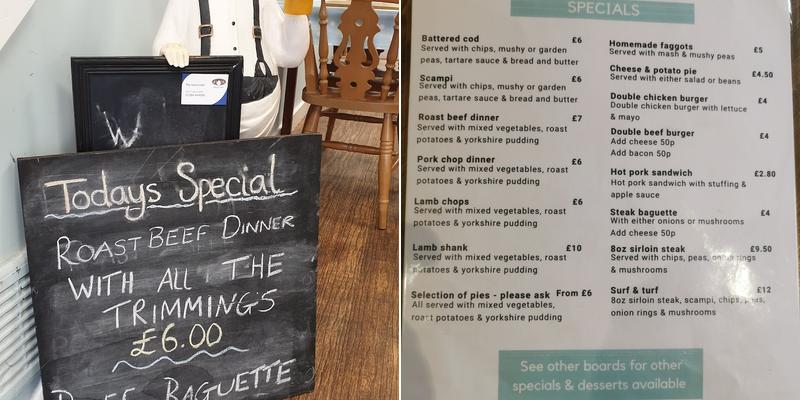 W
Todays Special
ROAST BEEF DINNER
WITH ALL THE
TRIMMING'S
£6.00
BAGUETTE
SPECIALS
Battered cod £6
Served with chips, mushy or garden
peas, tartare sauce & bread and butter
Scampi £6
Served with chips, mushy or garden
peas, tartare sauce & bread and butter
Roast beef dinner £7
Served with mixed vegetables, roast
potatoes & yorkshire pudding
Pork chop dinner £6
Served with mixed vegetables, roast
potatoes & yorkshire pudding
Lamb chops £6
Served with mixed vegetables, roast
potatoes & yorkshire pudding
Lamb shank £10
Served with mixed vegetables, roast
potatoes & yorkshire pudding
Selection of pies - please ask From £6
All served with mixed vegetables,
roast potatoes & yorkshire pudding
Homemade faggots £5
Served with mash & mushy peas
Cheese & potato pie £4.50
Served with either salad or beans
Double chicken burger £4
Double chicken burger with lettuce
& mayo
Double beef burger £4
Add cheese 50p
Add bacon 50p
Hot pork sandwich £2.80
Hot pork sandwich with stuffing &
apple sauce
Steak baguette £4
With either onions or mushrooms
Add cheese 50p
8oz sirloin steak £9.50
Served with chips, peas, onion rings
& mushrooms
Surf & turf £12
8oz sirloin steak, scampi, chips, peas,
onion rings & mushrooms
See other boards for other
specials & desserts available